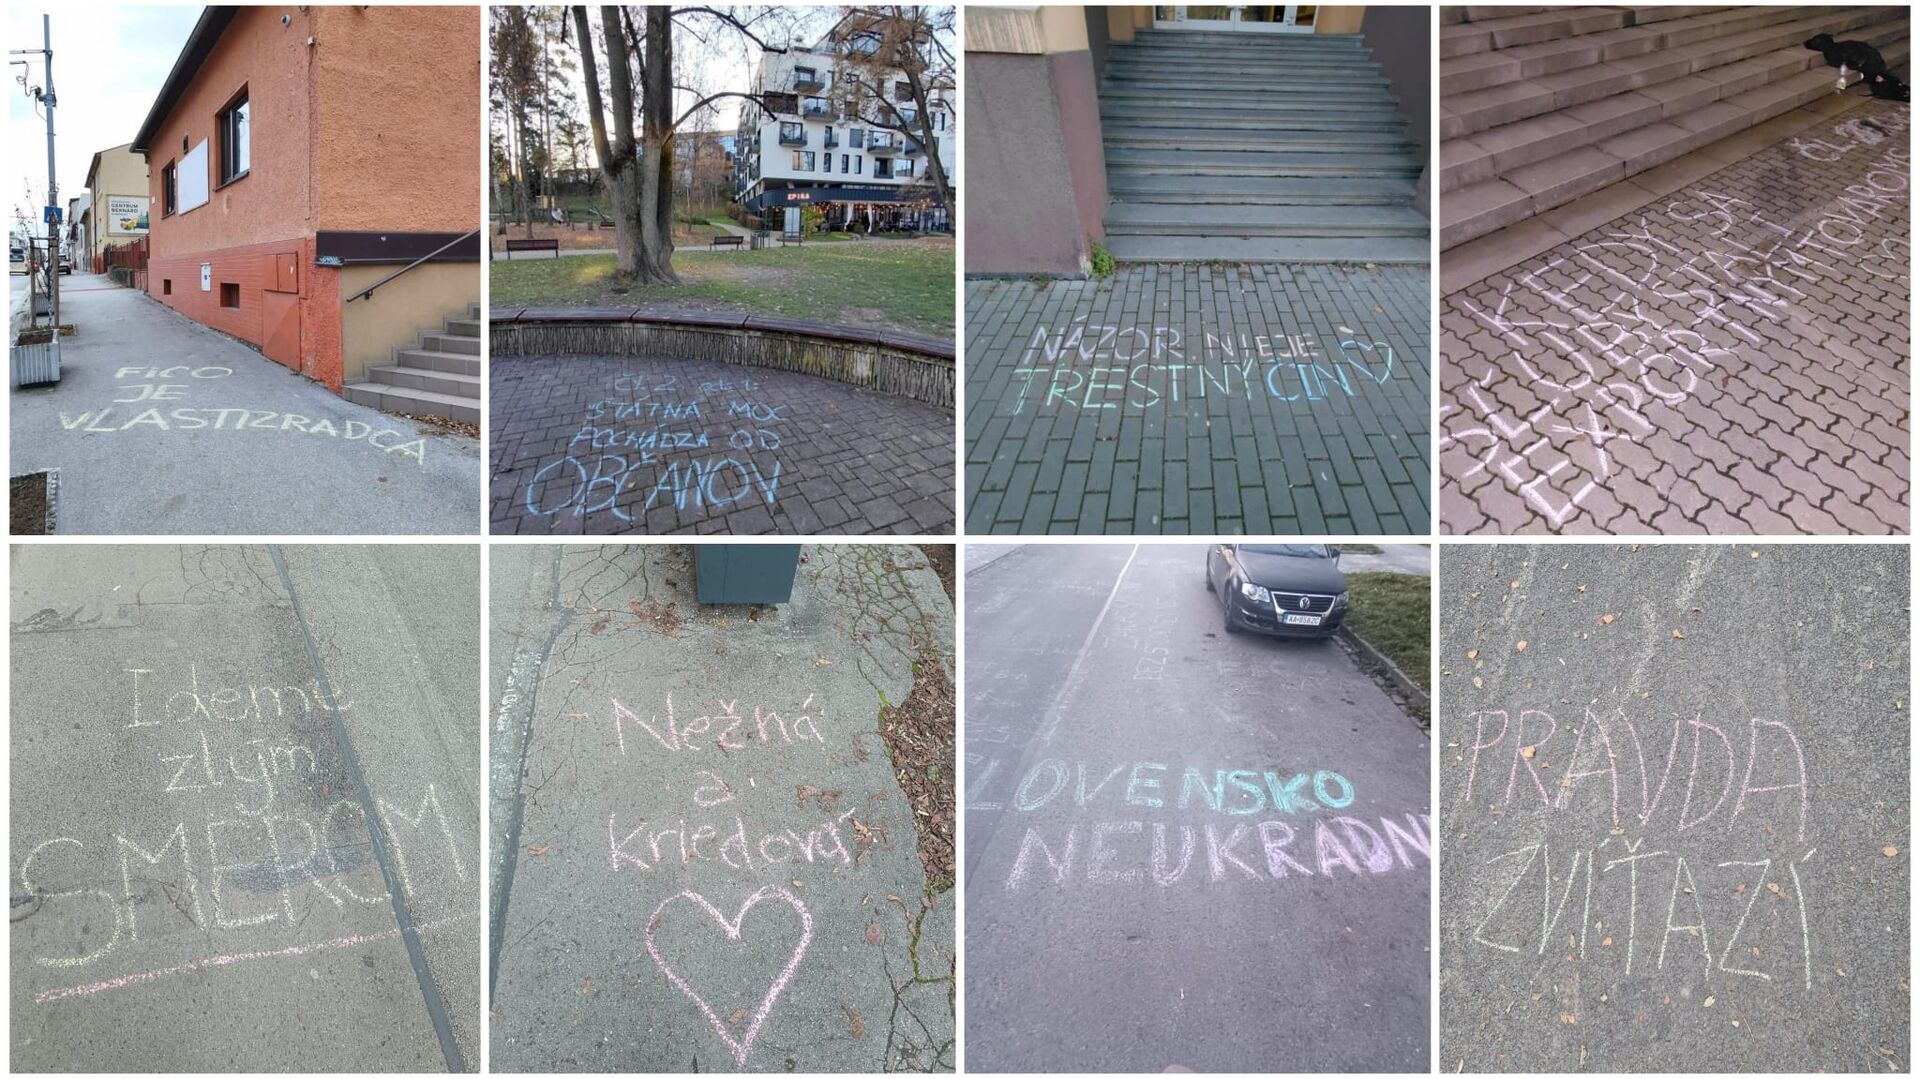 CENTRUM
BERNARD
FICO
JE
VLASTIZRADCA
EPIKA
ČL. 2
ŠTÁTNA MOC
POCHÁDZA OD
OBČANOV
NÁZOR NIE JE
TRESTNÝ ČIN
KEDY SA
SĽUBY STALI
EXPORTNÝM TOVAROM
Ideme
zlým
SMEROM
Nežná
a
kriedová
AA 858ZC
LOVENSKO
NEUKRADN
PRAVDA
ZVÍŤAZÍ